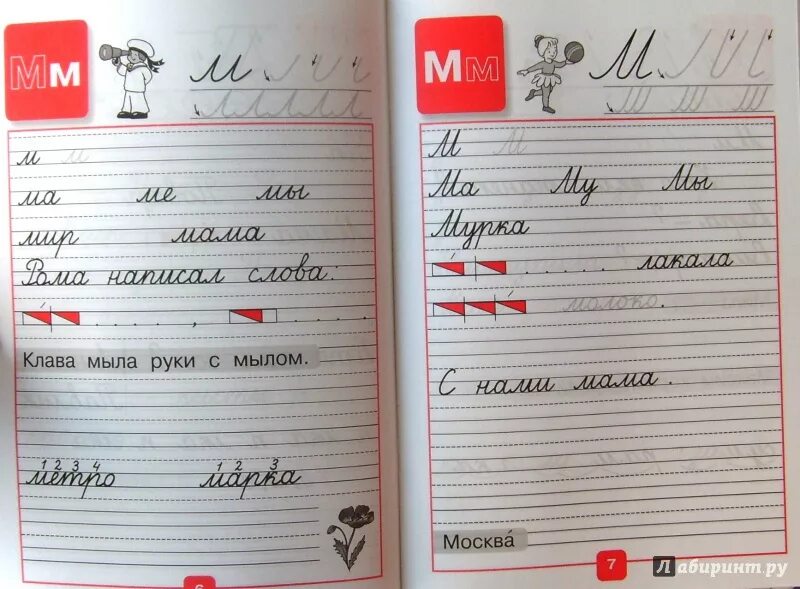 Мм
м
м м
ма ме мы
мир мама
Рома написал слова:
. . . . . , . . . .
Клава мыла руки с мылом.
1 2 3 4 1 2 3
метро марка
6
Мм
М
М М
Ма Му Мы
Мурка
. . . . . лакала
молоко.
С нами мама.
Москва́
7
Лабиринт.ру